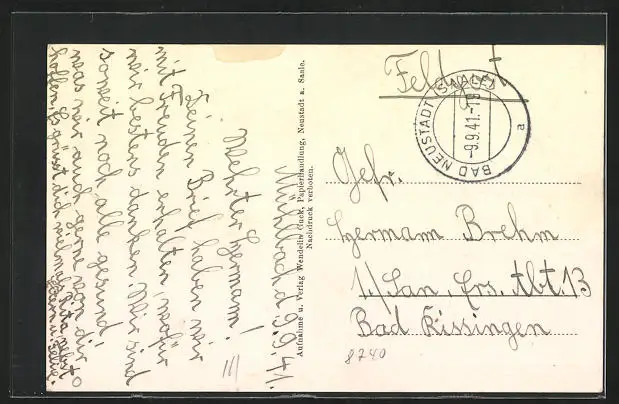 Mühlbach d. 9.9.41.
Wehrter Hermann!
Deinen Brief haben wir
mit Freuden erhalten, wofür
wir bestens danken. Wir sind
soweit noch alle gesund,
was wir auch gerne von dir
hoffen. Es grüßt dich vielmals
nebst
Eltern u.
Aufnahme u. Verlag Wendelin Guck, Papierhandlung, Neustadt a. Saale.
Nachdruck verboten.
Feldpost
BAD NEUSTADT (SAALE)
-9.9.41.-
a
Gefr.
Hermann Brehm
1./San. Ers. Abt. 13
Bad Kissingen
8740